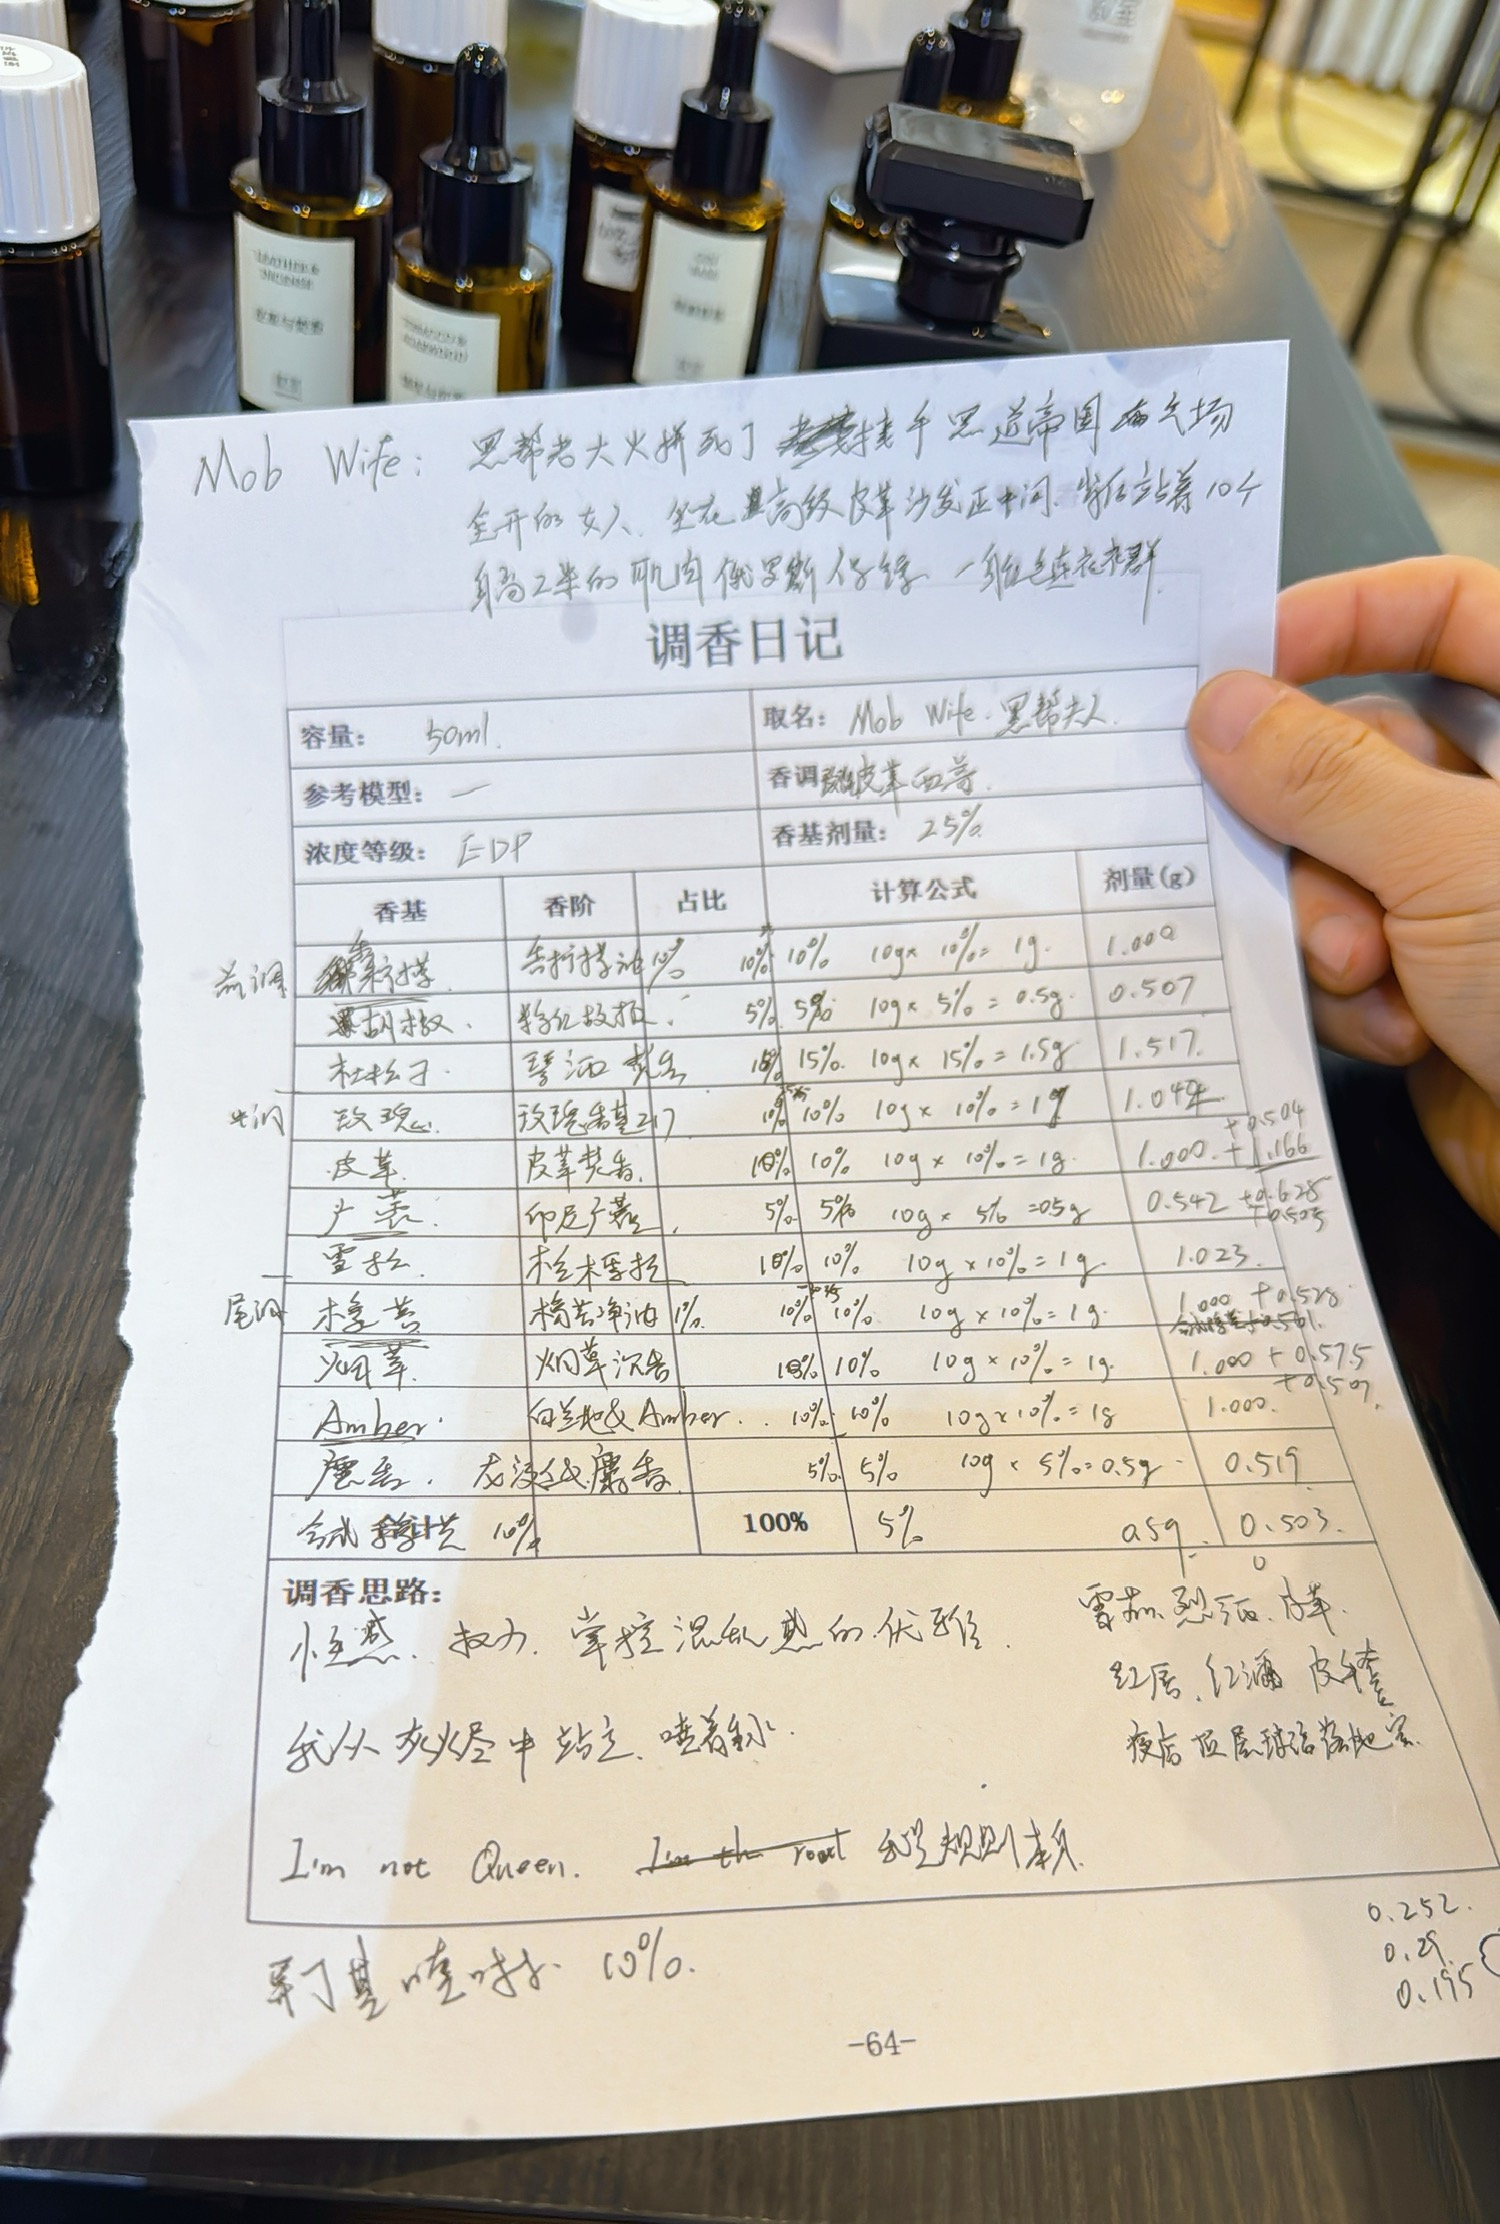 Mob Wife: 黑帮老大火拼死了 接手黑道帝国 气场
全开的女人、坐在 高级皮革沙发正中间、背后站着10个
身高2米的肌肉俄罗斯保镖、一身红色连衣裙
调香日记
容量: 50ml. 取名: Mob Wife. 黑帮夫人.
参考模型: — 香调: 皮革西普.
浓度等级: EDP 香基剂量: 25%
香基 香阶 占比 计算公式 剂量(g)
前调 香柠檬. 香柠檬油 10% 10% 10% 10g× 10%= 1g. 1.000
黑胡椒. 粉红胡椒. 5% 5% 10g× 5% = 0.5g. 0.507
杜松子. 琴酒 15% 10g× 15% = 1.5g 1.517.
中调 玫瑰. 玫瑰香基217 10% 10% 10g× 10% = 1g 1.044 +0.504
皮革. 皮革焚香. 10% 10% 10g × 10% = 1g. 1.000. + 1.166
广藿. 印尼广藿. 5% 5% 10g × 5% =0.5g 0.542 +0.628
+0.505
雪松. 桧木雪松 10% 10% 10g ×10% = 1g. 1.023.
尾调 橡苔 橡苔净油 1% 10% 10% 10g ×10% = 1g. 1.000 + 0.528
烟草. 烟草沉香 10% 10% 10g ×10% = 1g. 1.000 + 0.575
+0.507.
Amber. 白兰地& Amber. 10% 10% 10g×10% = 1g 1.000.
麝香. 龙涎&麝香. 5% 5% 10g × 5%=0.5g 0.519
合成 10% 100% 5% 0.5g. 0.503.
调香思路:
性感、权力、掌控混乱感的优雅. 雪松、烈酒、皮革.
红唇、红酒 皮手套
我从灰烬中站立、喷着香水. 夜店顶层 落地窗.
I'm not Queen. I'm the root 我是规则本身.
0.252.
0.29.
0.195
异丁基喹啉. 10%.
-64-